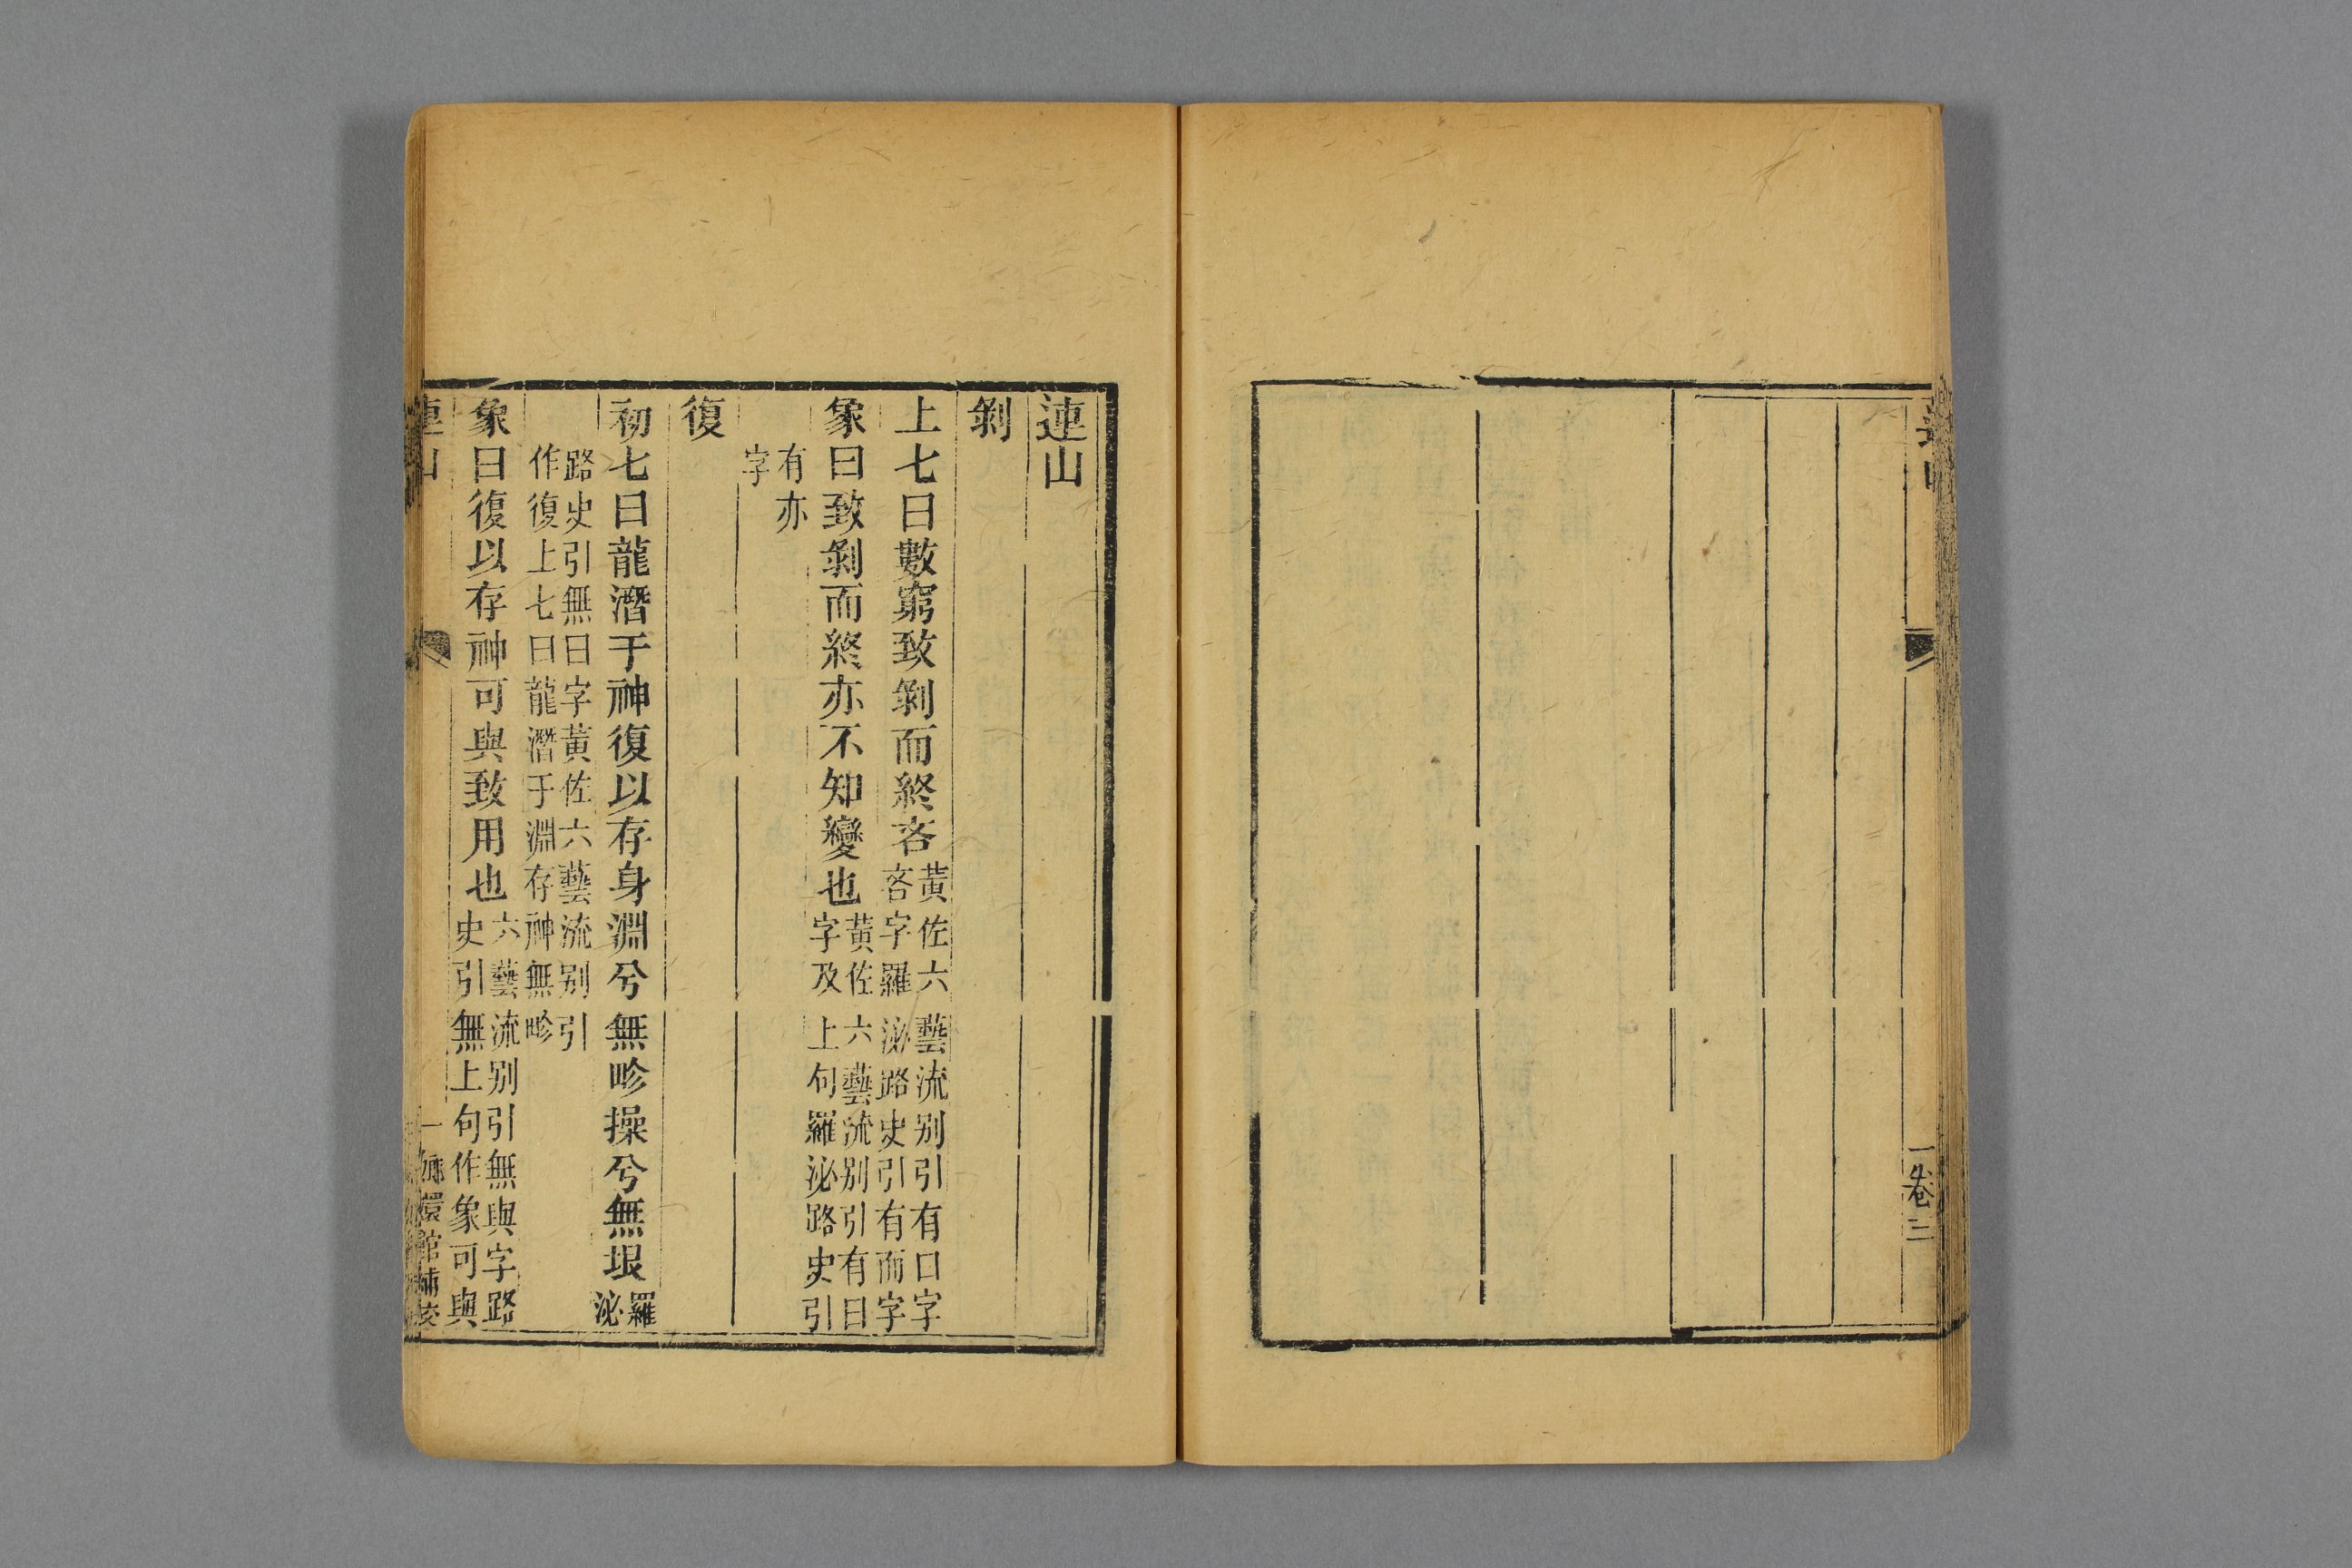 卷
連山
剝
上七曰數窮致剝而終吝
黃佐六藝流别引有口字
吝字羅泌路史引有而字
象曰致剝而終亦不知變也
黃佐六藝流别引有曰
字及上句羅泌路史引
有亦
字
復
初七曰龍潛于神復以存身淵兮無畛操兮無垠
羅
泌
路史引無曰字黃佐六藝流别引
作復上七曰龍潛于淵存神無畛
象曰復以存神可與致用也
六藝流别引無與字路
史引無上句作象可與
連山
一
嫏嬛館補校